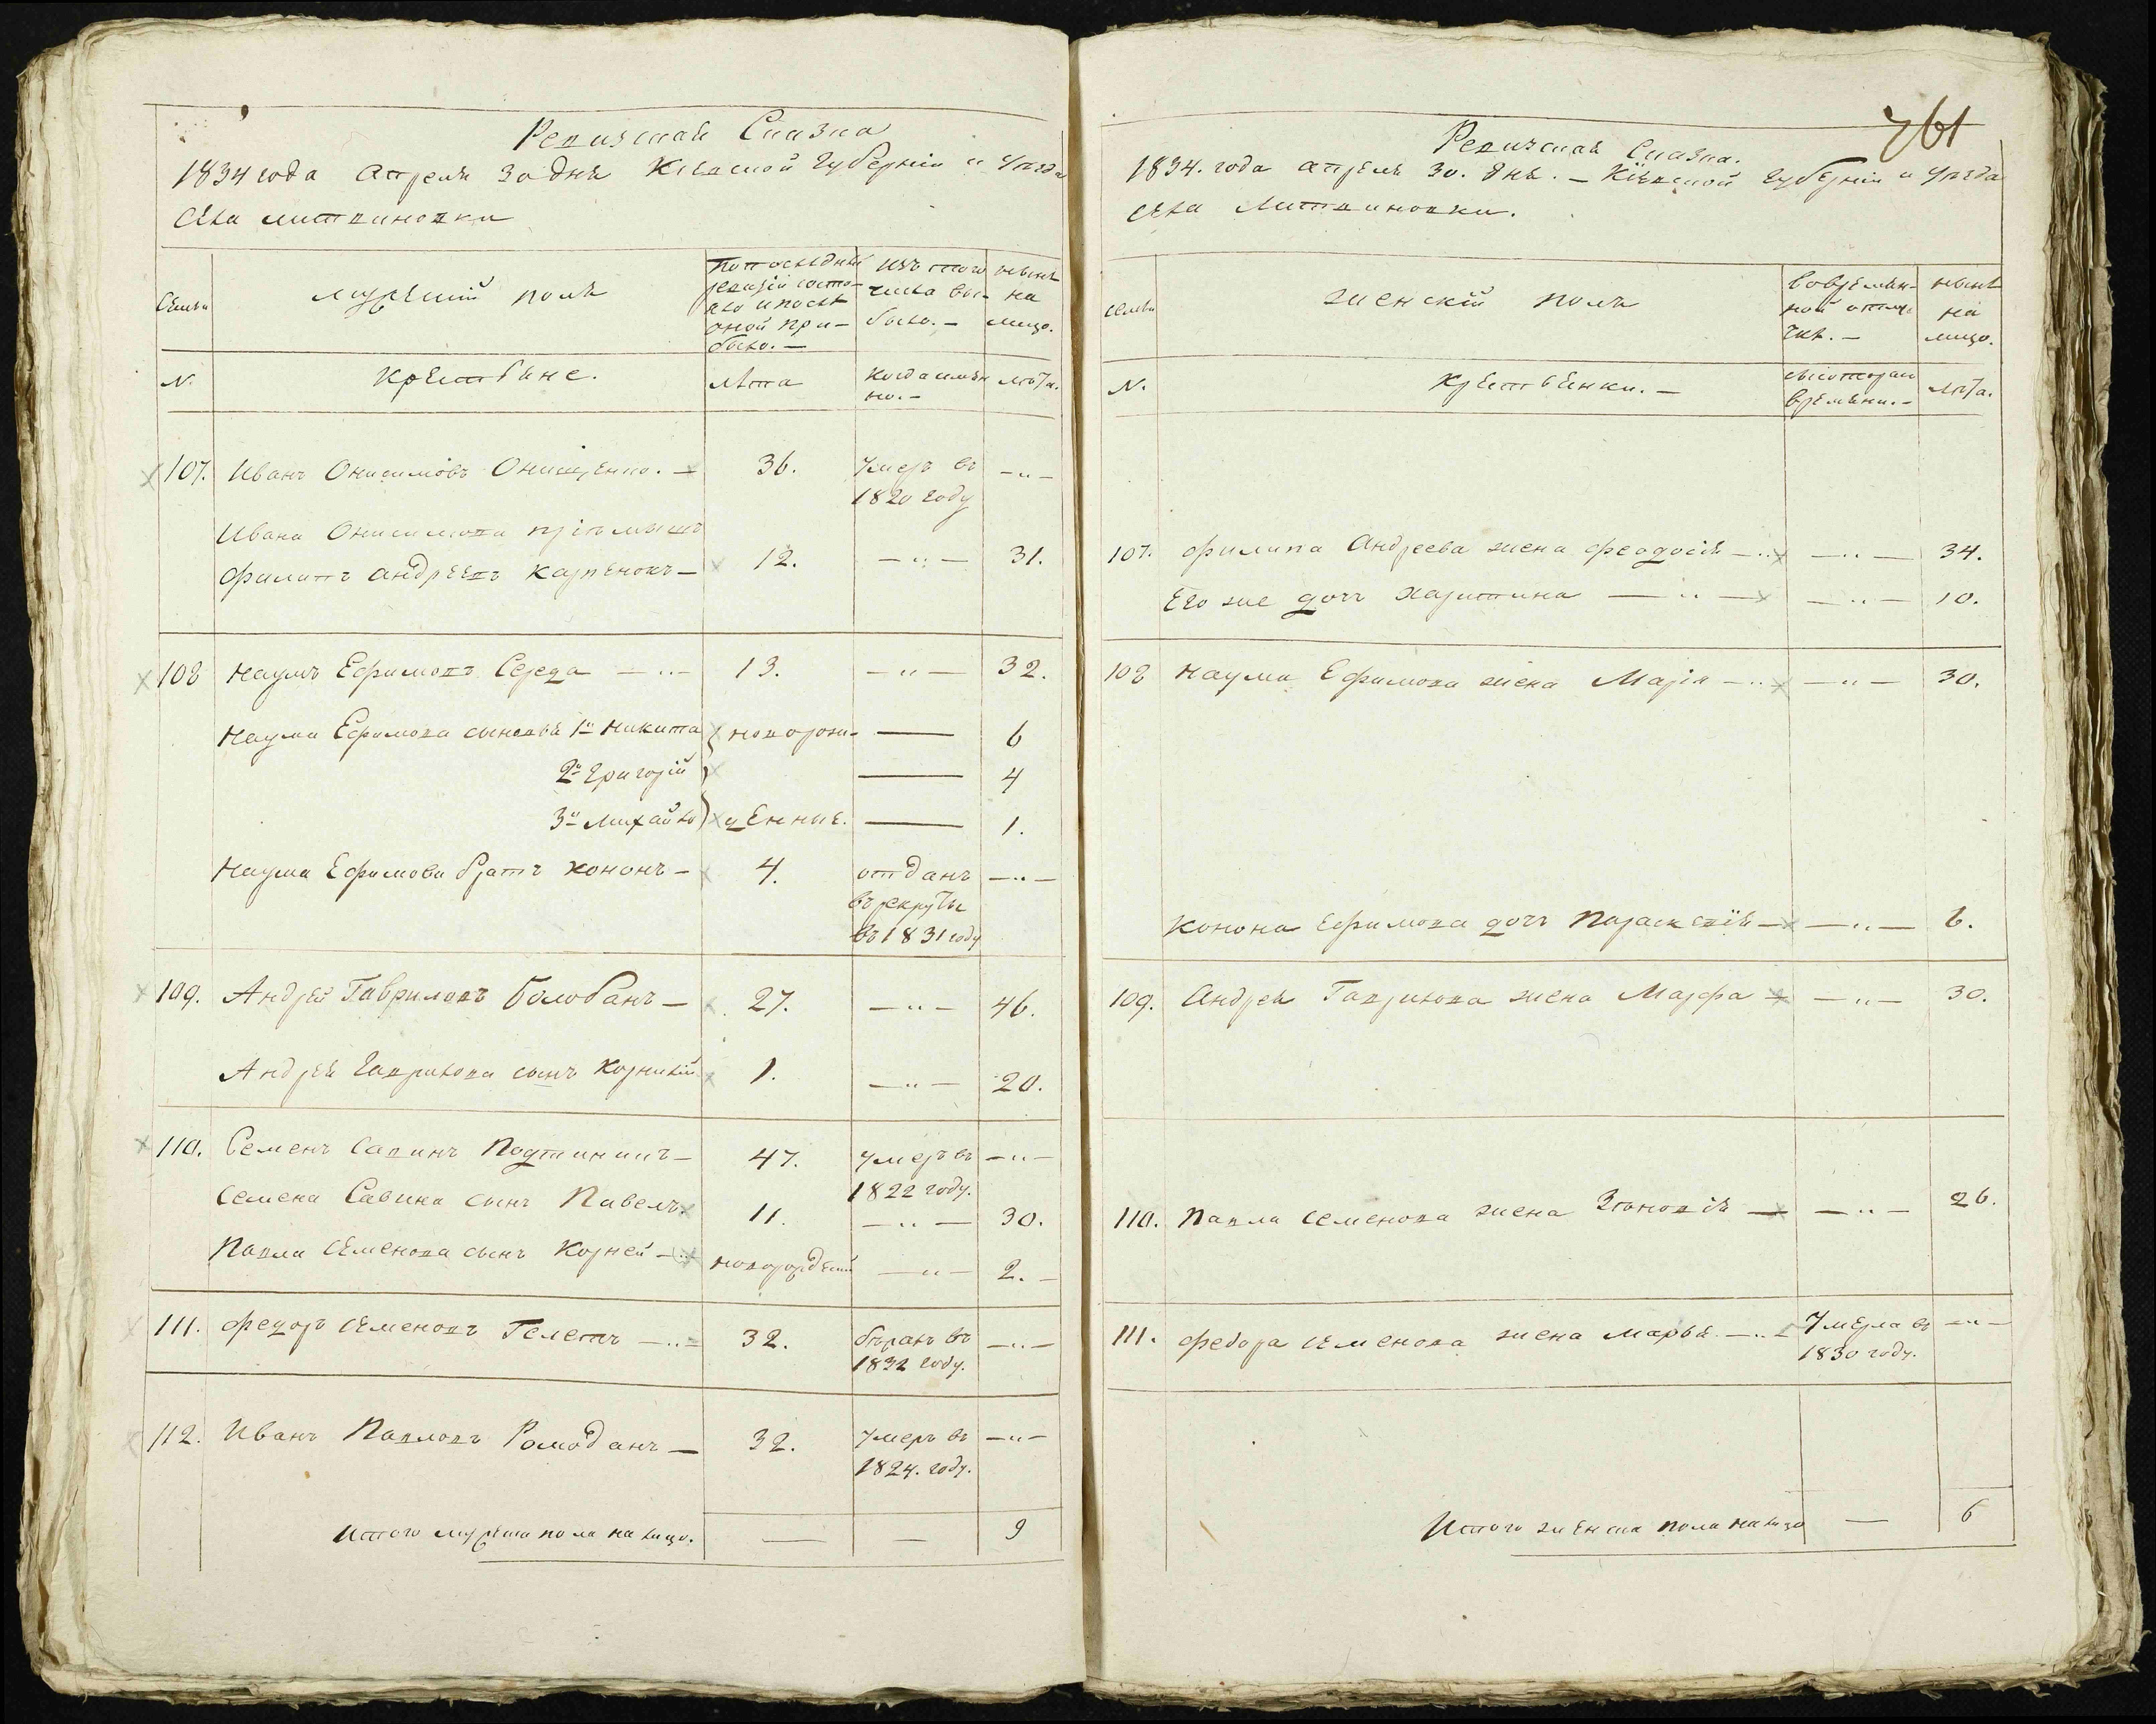 Ревизская Сказка
1834 года апреля 30 дня Кіевской Губерніи и уезда
села литвиновки
Семьи
мужеский полъ
По последней ревизіи состояло и после оной прибыло. —
Изъ того числа выбыло. —
ныне на лицо.
№.
Крестьяне.
лета
Когда именно. —
лета.
107. Иванъ Онисимовъ Онищенко. — 36. Умеръ въ — " —
1820 году
Ивана Онисимова пріемышъ
Филипъ Андреевъ Карпенокъ — 12. — " — 31.
108 Наумъ Ефимовъ Середа — " — 13. — " — 32.
Наума Ефимова сыновья 1й Никита новорож- — 6
2й Григорій — 4
3й Михайло денные. — 1.
Наума Ефимова братъ Кононъ — 4. отданъ — " —
въ рекруты
въ 1831 году
109. Андрей Гавриловъ Болобанъ — 27. — " — 46.
Андрея Гаврилова сынъ Корнилій 1. — " — 20.
110. Семенъ Савинъ — 47. Умеръ въ — " —
1822 году.
Семена Савина сынъ Павелъ 11. — " — 30.
Павла Семенова сынъ Корней — новорожденный — " — 2. —
111. Федоръ Семеновъ Гелетъ — " — 32. бежалъ въ — " —
1832 году.
112. Иванъ Павловъ Ромоданъ — 32. Умеръ въ — " —
1824. году.
Итого мужеска пола на лицо. — — 9
761
Ревизская Сказка.
1834. года апреля 30. дня. — Кіевской Губерніи и уезда
села Литвиновки.
семьи
женскій полъ
Во временной отлучке. —
ныне на лицо.
№.
Крестьянки. —
съ котораго времени. —
лета.
107. Филипа Андреева жена Феодосія — " — — " — 34.
Его же дочь Харитина — " — — " — 10.
108 Наума Ефимова жена Марія — " — — " — 30.
Конона Ефимова дочь Параскевія — — " — 6.
109. Андрея Гаврилова жена Марфа — — " — 30.
110. Павла Семенова жена Зѣновія — — " — 26.
111. Федора Семенова жена Марья — " — Умерла въ — " —
1830 году.
Итого женска пола на лицо — 6